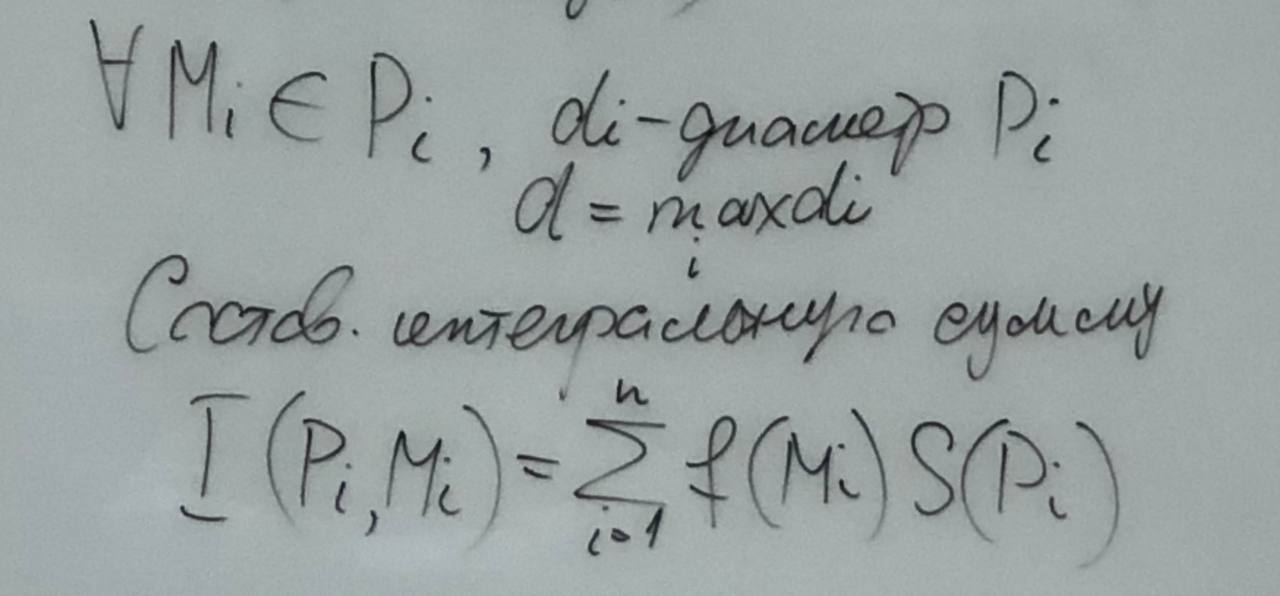 ∀ Mi ∈ Pi, di - диаметр Pi
d = max di
i
Состав. интегральную сумму
n
I (Pi, Mi) = ∑ f(Mi) S(Pi)
i=1